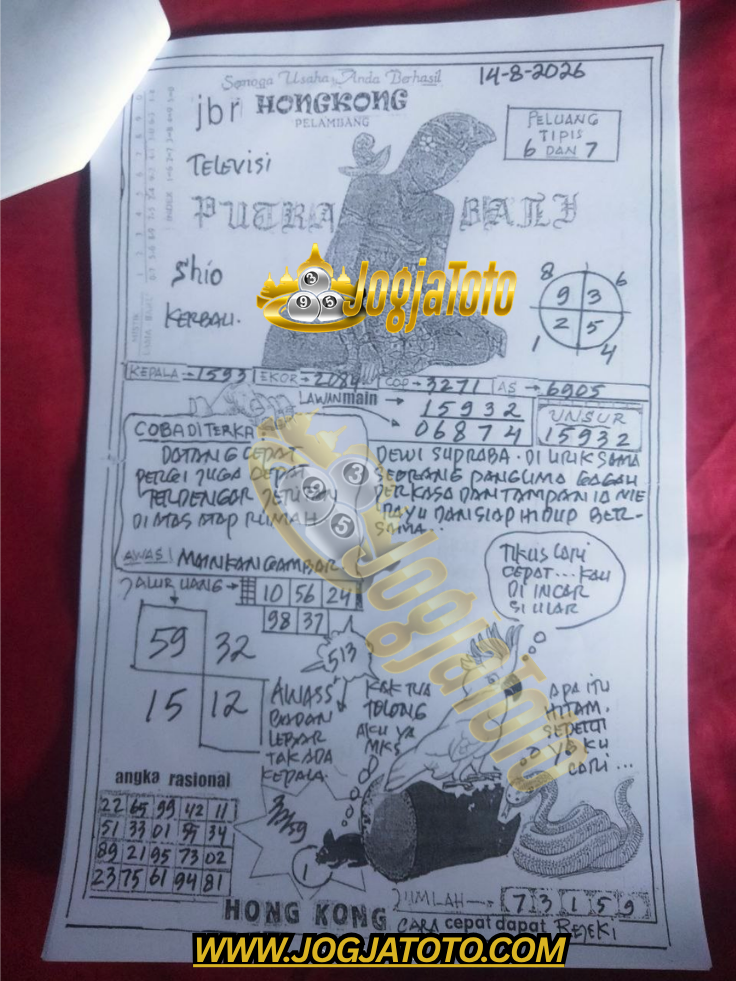 Semoga Usaha Anda Berhasil
14-8-2026
jbr HONGKONG
PELAMBANG
PELUANG
TIPIS
6 DAN 7
TELEVISI
PUTRA BALI
Shio
KERBAU.
JogjaToto
3
9 5
8 6
9 3
2 5
1 4
KEPALA → 1593 EKOR → 2084 COP → 3271 AS → 6905
LAWAN main → 15932
06874
UNSUR
15932
COBA DITERKA
DATANG CEPAT
PERGI JUGA CEPAT
TERDENGAR
DI ATAS ATAP RUMAH
DEWI SUPRABA. DI LIRIK SAMA
SEORANG PANGLIMA GAGAH
PERKASA DAN TAMPAN IA ME
RAYU DAN SIAP HIDUP BER-
SAMA..
AWAS! MAINKAN GAMBAR
JALUR UANG → 10 56 24
98 37
TIKUS LARI
CEPAT... KAU
DI INCAR
SI ULAR
59 32
15 12
513
AWASS
BADAN
LEBAR
TAK ADA
KEPALA.
KAKTUA
TOLONG
AKU YA
MKS
APA ITU
HITAM.
SEPERTI
YG KU
CARI ...
JogjaToto
3
9
5
angka rasional
22 65 99 42 11
51 33 01 55 34
89 21 95 73 02
23 75 61 94 81
1
JUMLAH → 7 3 1 5 9
HONG KONG CARA cepat dapat REJEKI
WWW.JOGJATOTO.COM